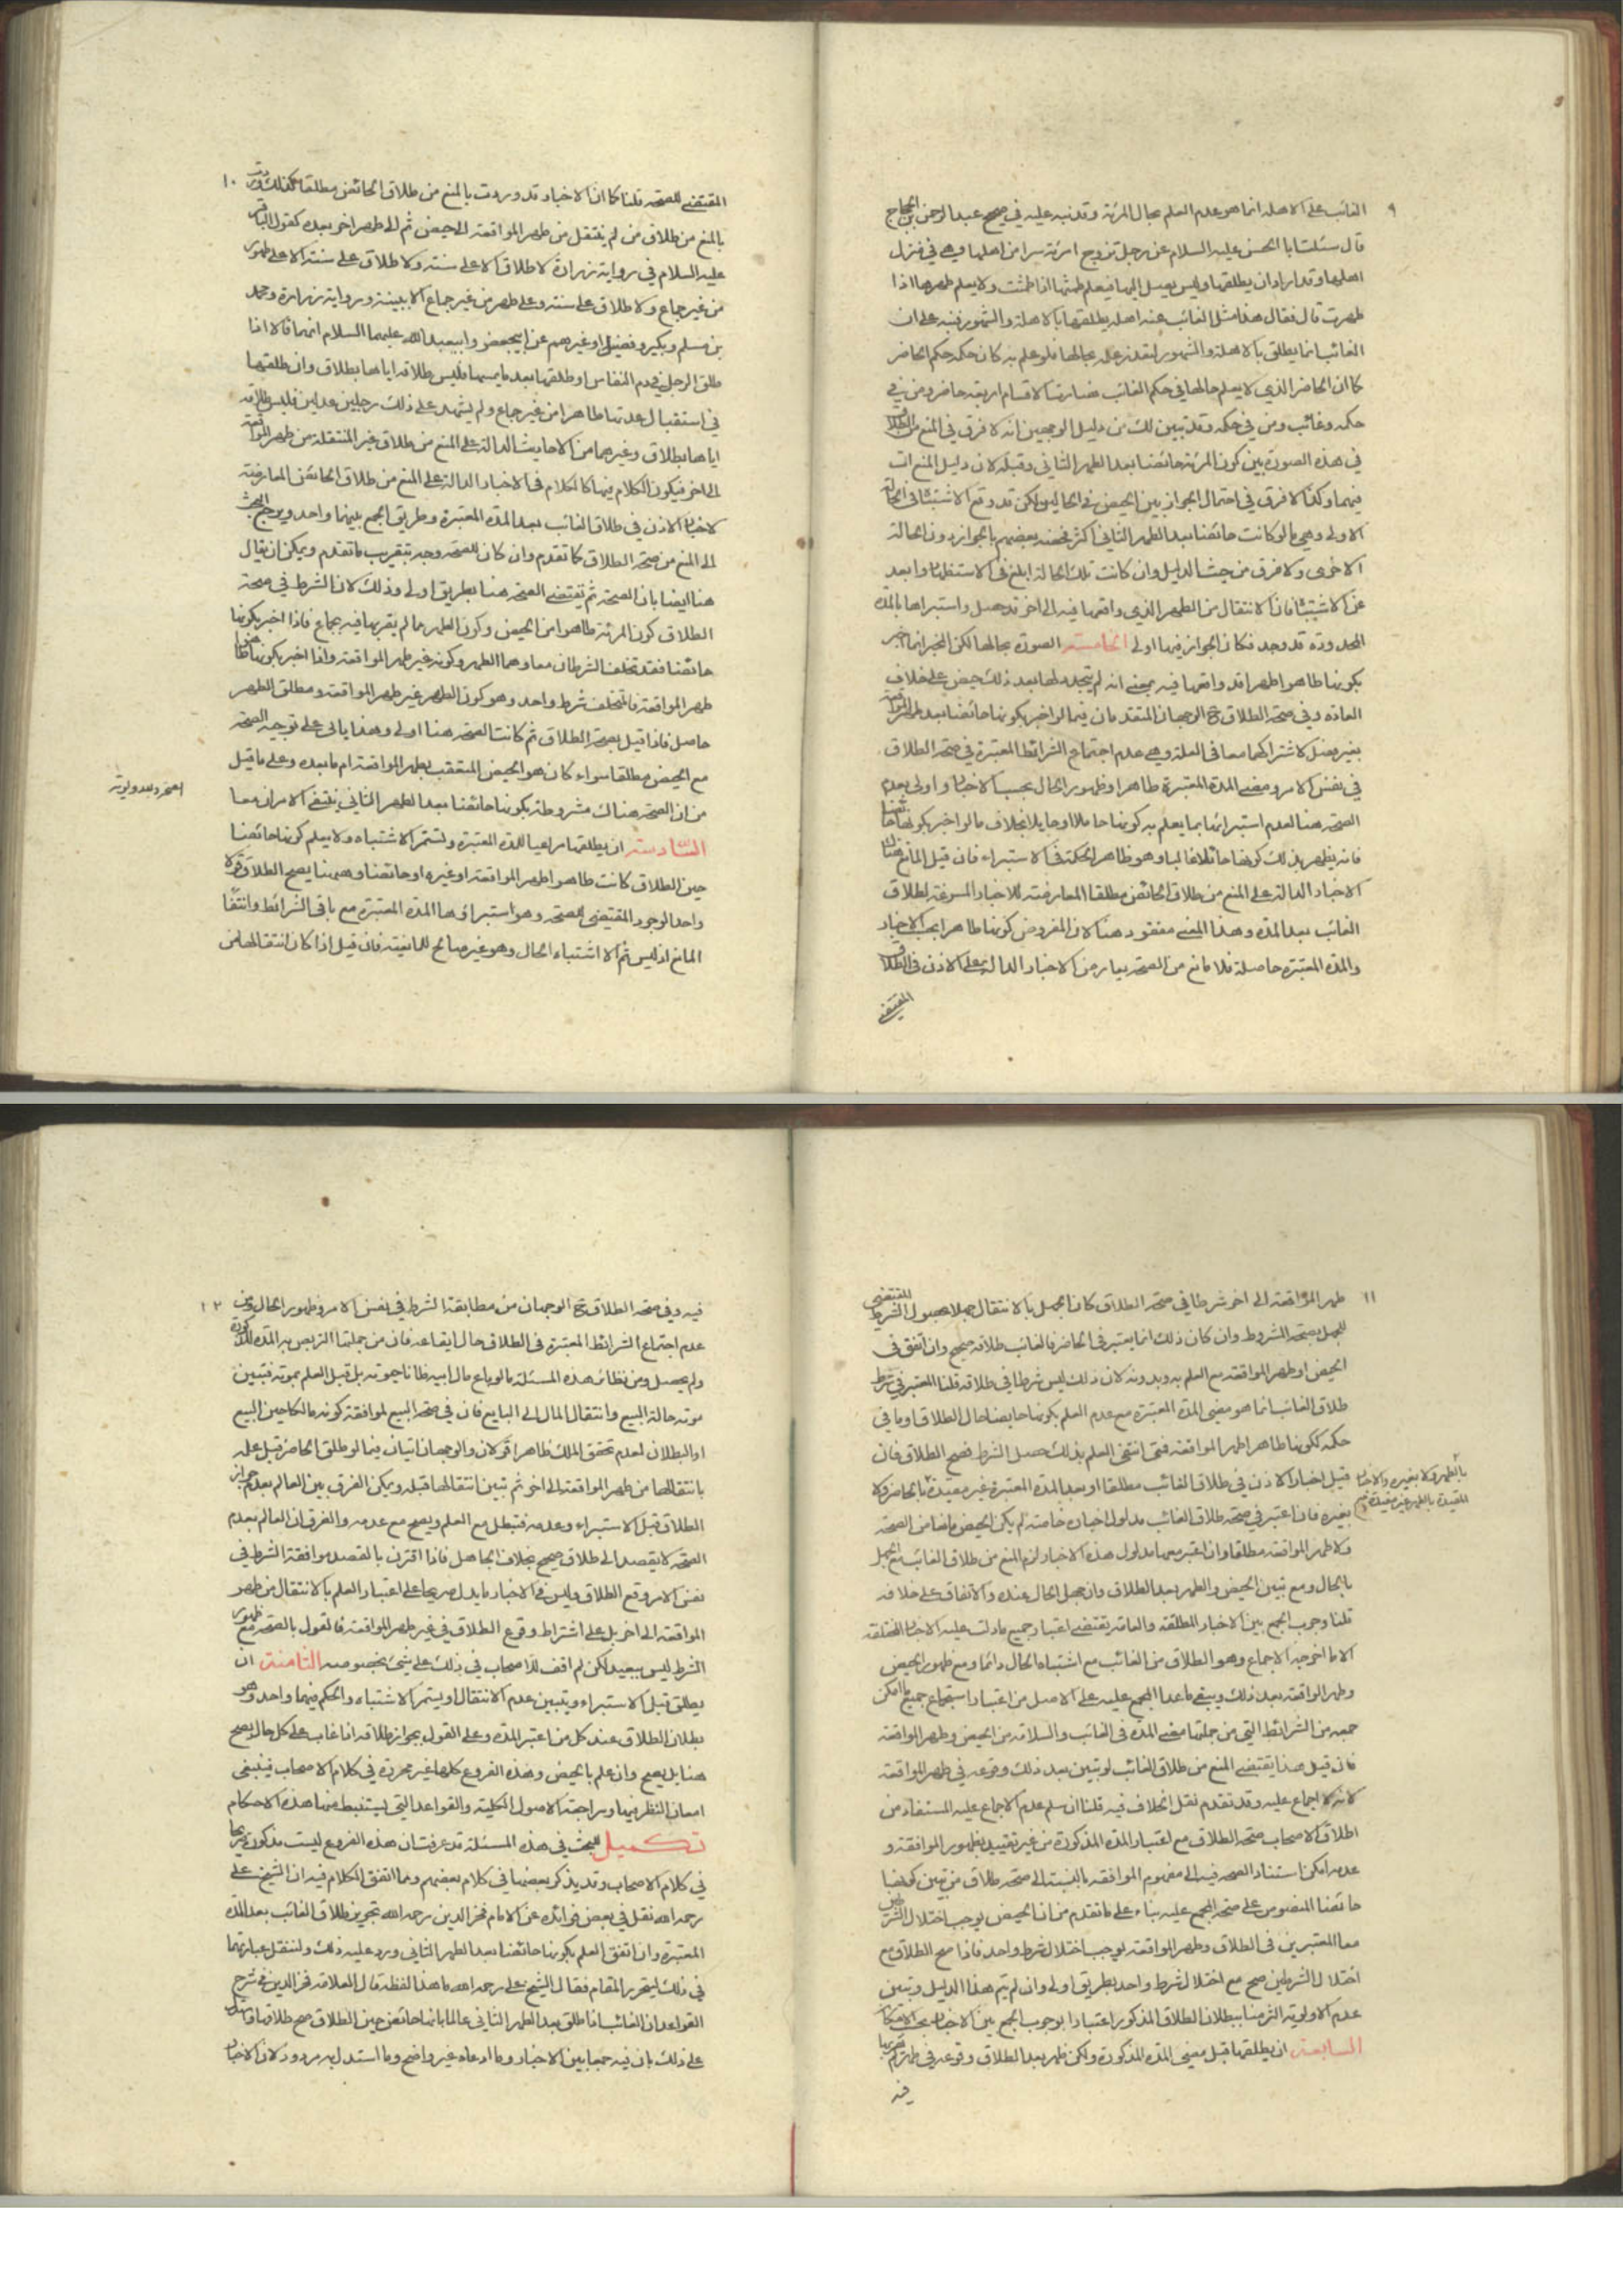 ٩
الغائب على الاهلة انما هو عدم العلم بحال المرئة وقد نبه عليه في صحيح عبد الرحمن بن الحجاج
قال سئلت ابا الحسن عليه السلام عن رجل تزوج امرئة سرا من اهلها وهي في منزل
اهلها وقد اراد ان يطلقها وليس يصل اليها فيعلم طمثها اذا طمثت ولا يعلم طهرها اذا
طهرت قال فقال هذا مثل الغائب عنه اهله يطلقها بالاهلة والشهور فنبه على ان
الغائب انما يطلق بالاهلة والشهور لتعذر علمه بحالها فلو علم به كان حكمه حكم الحاضر
كما ان الحاضر الذي لا يعلم حالها في حكم الغائب فصارت الاقسام اربعة حاضر ومن في
حكمه وغائب ومن في حكمه وقد تبين لك من دليل الوجهين انه لا فرق في المنع من الطلاق
في هذه الصورة بين كون المرئة حائضا بعد الطهر الثاني وقبله لان دليل المنع ات
فيهما وكذا لا فرق في احتمال الجواز بين الحيض في الحالين لكن قد وقع الاشتباه في الحالة
الاولى وهي ما لو كانت حائضا بعد الطهر الثاني اكثر فخصه بعضهم بالجواز دون الحالة
الاخرى ولا فرق من حيث الدليل وان كانت تلك الحالة ابلغ في الاستظهار وابعد
عن الاشتباه فان الانتقال من الطهر الذي واقعها فيه الى اخر قد حصل واستبراها بالمدة
المحدودة قد وجد فكان الجواز فيها اولى الخامسة الصورة بحالها لكن المخبر انما اخبر
بكونها طاهرا طهرا قد واقعها فيه بمعنى انه لم يتجدد لها بعد ذلك حيض على خلاف
العادة وفي صحة الطلاق ح الوجهان المتقدمان فيما لو اخبر بكونها حائضا بعد طهر المواقعة
بغير فصل لاشتراكهما معا في العلة وهي عدم اجتماع الشرائط المعتبرة في صحة الطلاق
في نفس الامر ومضى المدة المعتبرة ظاهرا وظهور الحال بحسب الاخبار واولى بعدم
الصحة هنا لعدم استبرائها بما يعلم به كونها حاملا او حايلا بخلاف ما لو اخبر بكونها حائضا
فانه يظهر بذلك كونها حائلا غالبا وهو ظاهر الحكمة في الاستبراء فان قيل المانع هناك
الاخبار الدالة على المنع من طلاق الحائض مطلقا المعارضة للاخبار المسوغة لطلاق
الغائب بعد المدة وهذا المعنى مفقود هنا لان المفروض كونها طاهرا بحسب الاخبار
والمدة المعتبرة حاصلة فلا مانع من الصحة يعارض الاخبار الدالة على الاذن في الطلاق
المقتضى
١٠
المقتضى للصحة قلنا كما ان الاخبار قد وردت بالمنع من طلاق الحائض مطلقا كذلك وردت
بالمنع من طلاق من لم ينتقل من طهر المواقعة الى حيض ثم الى طهر اخر بعده كقول الباقر
عليه السلام في رواية زرارة لا طلاق الا على سنة ولا طلاق على سنة الا على طهور
من غير جماع ولا طلاق على سنة وعلى طهر من غير جماع الا ببينة ورواية زرارة ومحمد
بن مسلم وبكير وفضيل وغيرهم عن ابيجعفر وابيعبد الله عليهما السلام انهما قالا اذا
طلق الرجل في دم النفاس او طلقها بعد ما يمسها فليس طلاقه اياها بطلاق وان طلقها
في استقبال عدتها طاهرا من غير جماع ولم يشهد على ذلك رجلين عدلين فليس طلاقه
اياها بطلاق وغيرهما من الاحاديث الدالة على المنع من طلاق غير المنتقلة من طهر المواقعة
الى اخر فيكون الكلام فيها كالكلام في الاخبار الدالة على المنع من طلاق الحائض المعارضة
لاخبار الاذن في طلاق الغائب بعد المدة المعتبرة وطريق الجمع بينهما واحد ويرجح البحث
الى المنع من صحة الطلاق كما تقدم وان كان للصحة وجه بتقريب ما تقدم ويمكن ان يقال
هنا ايضا بان الصحة ثم تقتضى الصحة هنا بطريق اولى وذلك لان الشرط في صحة
الطلاق كون المرئة طاهرا من الحيض وكون الطهر مما لم يقربها فيه بجماع فاذا اخبر بكونها
حائضا فقد تخلف الشرطان معا وهما الطهر وكونه غير طهر المواقعة واذا اخبر بكونها طاهرا
طهر المواقعة فالمتخلف شرط واحد وهو كون الطهر غير طهر المواقعة ومطلق الطهر
حاصل فاذا قيل بصحة الطلاق ثم كانت الصحة هنا اولى وهذا ياتى على توجيه الصحة
مع الحيض مطلقا سواء كان هو الحيض المتعقب بطهر المواقعة ام ما بعده وعلى ما قيل
من ان الصحة هناك مشروطة بكونها حائضا بعد الطهر الثاني ينتفى الامران معا
السادسة ان يطلقها مراعيا للمدة المعتبرة وتستمر الاشتباه ولا يعلم كونها حائضا
حين الطلاق كانت طاهرا طهر المواقعة او غيره او حائضا وههنا يصح الطلاق قولا
واحدا لوجود المقتضى للصحة وهو استبراؤها المدة المعتبرة مع باقى الشرائط وانتفاء
المانع اذ ليس ثم الا اشتباه الحال وهو غير صالح للمانعية فان قيل اذا كان انتقالها من
١١
طهر المواقعة الى اخر شرطا في صحة الطلاق كان الجهل بالانتقال جهلا بحصول الشرط المقتضى
للجهل بصحة المشروط وان كان ذلك انما يعتبر في الحاضر فالغائب طلاقه صحيح وان اتفق في
الحيض او طهر المواقعة مع العلم به وبدونه لان ذلك ليس شرطا في طلاقه قلنا المعتبر في شرط
طلاق الغائب انما هو مضى المدة المعتبرة مع عدم العلم بكونها حايضا حال الطلاق او ما في
حكمه ككونها طاهرا طهر المواقعة فمتى انتفى العلم بذلك حصل الشرط فصح الطلاق فان
قيل اخبار الاذن في طلاق الغائب مطلقا او بعد المدة المعتبرة غير مقيدة بالحاضر ولا
بالطهر ولا بغيره والاخبار
المقيدة بالطهر غير مقيدة به ولا
بغيره فان اعتبر في صحة طلاق الغائب مدلول اخباره خاصة لم يكن الحيض مانعا من الصحة
ولا طهر المواقعة مطلقا وان اعتبر معها مدلول هذه الاخبار لزم المنع من طلاق الغائب مع الجهل
بالحال ومع تبين الحيض والطهر بعد الطلاق وان جهل الحال عنده والاتفاق على خلافه
قلنا وجوب الجمع بين الاخبار المطلقة والعامة يقتضى اعتبار جميع ما دلت عليه الاخبار المختلفة
الا ما اخرجه الاجماع وهو الطلاق من الغائب مع اشتباه الحال دائما ومع ظهور الحيض
وطهر المواقعة بعد ذلك ويبقى ما عدا المجمع عليه على الاصل من اعتبار استجماع جميع ما امكن
جمعه من الشرائط التي من جملتها مضى المدة في الغائب والسلامة من الحيض وطهر المواقعة
فان قيل هذا يقتضى المنع من طلاق الغائب لو تبين بعد ذلك وقوعه في طهر المواقعة
لانه لا اجماع عليه وقد تقدم نقل الخلاف فيه قلنا ان سلم عدم الاجماع عليه المستفاد من
اطلاق الاصحاب صحة الطلاق مع اعتبار المدة المذكورة من غير تقييد بظهور الموافقة و
عدمه امكن استناد الصحة فيه الى مفهوم الموافقة بالنسبة الى صحة طلاق من تبين كونها
حائضا المنصوص على صحة المجمع عليه بناء على ما تقدم من ان الحيض يوجب اختلال الشرطين
معا المعتبرين في الطلاق وطهر المواقعة يوجب اختلال شرط واحد فاذا صح الطلاق مع
اختلال الشرطين صح مع اختلال شرط واحد بطريق اولى وان لم يتم هذا الدليل وتبين
عدم الاولوية التزمنا ببطلان الطلاق المذكور اعتبارا بوجوب الجمع بين الاخبار بحسب الامكان
السابعة ان يطلقها قبل مضى المدة المذكورة ولكن ظهر بعد الطلاق وقوعه في طهر لم يقربها
فيه
١٢
فيه وفي صحة الطلاق ح الوجهان من مطابقة الشرط في نفس الامر وظهور الحال ومن
عدم اجتماع الشرائط المعتبرة في الطلاق حال ايقاعه فان من جملتها التربص به المدة المذكورة
ولم يحصل ومن نظائر هذه المسئلة ما لو باع مال ابيه ظانا حيوته بل قبل العلم بموته فتبين
موته حالة البيع وانتقال المال الى البايع فان في صحة البيع لموافقة كونه مالكا حين البيع
او البطلان لعدم تحقق الملك ظاهرا قولان والوجهان اتيان فيما لو طلق الحاضر قبل علمه
بانتقالها من طهر المواقعة الى اخر ثم تبين انتقالها قبله ويمكن الفرق بين العالم بعدم جواز
الطلاق قبل الاستبراء وعدمه فتبطل مع العلم ويصح مع عدمه والفرق ان العالم بعدم
الصحة لا يقصد الى طلاق صحيح بخلاف الجاهل فاذا اقترن بالقصد موافقة الشرط في
نفس الامر وقع الطلاق وليس في الاخبار ما يدل صريحا على اعتبار العلم بالانتقال من طهر
المواقعة الى اخر بل على اشتراط وقوع الطلاق في غير طهر المواقعة فالقول بالصحة مع ظهور
الشرط ليس ببعيد لكن لم اقف للاصحاب في ذلك على شئ بخصوصه الثامنة ان
يطلق قبل الاستبراء ويتبين عدم الانتقال او يستمر الاشتباه والحكم فيهما واحد وهو
بطلان الطلاق عند كل من اعتبر المدة وعلى القول بجواز طلاقه اذا غاب على كل حال يصح
هنا بل يصح وان علم بالحيض وهذه الفروع كلها غير محررة في كلام الاصحاب فينبغى
امعان النظر فيها ومراجعة الاصول الكلية والقواعد التي يستنبط منها هذه الاحكام
تكميل للبحث في هذه المسئلة قد عرفت ان هذه الفروع ليست مذكورة صريحا
في كلام الاصحاب وقد يذكر بعضها في كلام بعضهم ومما اتفق الكلام فيه ان الشيخ على
رحمه الله نقل في بعض فوائده عن الامام فخر الدين رحمه الله تجويز طلاق الغائب بعد المدة
المعتبرة وان اتفق العلم بكونها حائضا بعد الطهر الثاني ورد عليه ذلك ولننقل عبارتهما
في ذلك ليتحرر المقام فقال الشيخ على رحمه الله ما هذا لفظه قال العلامة فخر الدين في شرح
القواعد ان الغائب اذا طلق بعد الطهر الثاني عالما بانها حائض حين الطلاق صح طلاقها واستدل
على ذلك بان فيه جمعا بين الاخبار وما ادعاه غير واضح وما استدل به مردود لان الاخبار